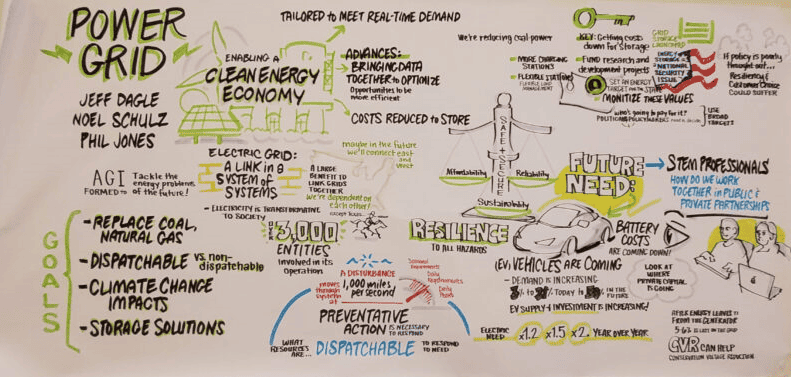 POWER
GRID
JEFF DAGLE
NOEL SCHULZ
PHIL JONES
AGI
FORMED TO
Tackle the
energy problems
of the future!
GOALS
- REPLACE COAL,
NATURAL GAS
- DISPATCHABLE VS. non-
dispatchable
- CLIMATE CHANGE
IMPACTS
- STORAGE SOLUTIONS
TAILORED to MEET REAL-TIME DEMAND
ENABLING A
CLEAN ENERGY
ECONOMY
ADVANCES:
BRINGING DATA
TOGETHER to OPTIMIZE
Opportunities to be
more efficient
COSTS REDUCED to STORE
maybe in the future
we'll connect east
and west
ELECTRIC GRID:
A LINK in a
SYSTEM of
SYSTEMS
- ELECTRICITY IS TRANSFORMATIVE
TO SOCIETY
A LARGE
BENEFIT TO
LINK GRIDS
TOGETHER
We're dependent on
each other!
3,000
ENTITIES
involved in its
operation
A DISTURBANCE
moves
through
system
at
1,000 miles
per second
PREVENTATIVE
ACTION IS NECESSARY
TO RESPOND
WHAT
RESOURCES
ARE...
DISPATCHABLE
TO RESPOND
TO NEED
RESILIENCE
TO ALL HAZARDS
We're reducing coal-power
- MORE CHARGING
STATIONS
- FLEXIBLE
KEY: Getting costs
down for storage
- FUND research and
development projects
SET AN ENERGY
TARGET FOR THE STATE
- MONITIZE THESE VALUES
who's going to pay for it?
GRID
STORAGE
ENERGY
STORAGE is a
NATIONAL
SECURITY
ISSUE
If policy is poorly
thought out...
Resiliency &
Customer Choice
COULD SUFFER
USE
BROAD
TARGETS
SAFE + SECURE
Affordability
Reliability
Sustainability
FUTURE
NEED:
STEM PROFESSIONALS
HOW DO WE WORK
TOGETHER in PUBLIC &
PRIVATE PARTNERSHIPS
BATTERY
COSTS
ARE COMING DOWN!
(EV) VEHICLES ARE COMING
- DEMAND IS INCREASING
IN THE
FUTURE
EV SUPPLY + INVESTMENT IS INCREASING!
ELECTRIC
NEED
x1.2 x1.5 x2 YEAR OVER YEAR
LOOK AT
WHERE
PRIVATE CAPITAL
IS GOING
AFTER ENERGY LEAVES
FROM THE GENERATOR
IS LOST ON THE GRID
CVR CAN HELP
CONSERVATION VOLTAGE REDUCTION